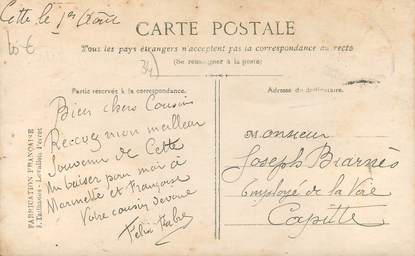 Cette le 1er Août
10 €
CARTE POSTALE
Tous les pays étrangers n'acceptent pas la correspondance au recto
(Se renseigner à la poste)
34)
Partie réservée à la correspondance.
Adresse du destinataire.
Bien chers Cousins
Recevez mon meilleur
Souvenir de Cette
Un baiser pour moi à
Marinette et Françoise
Votre cousin dévoué
Félix Fabre
Monsieur
Joseph Biarnès
Employé de la Voie
FABRICATION FRANÇAISE
Levallois-Perret